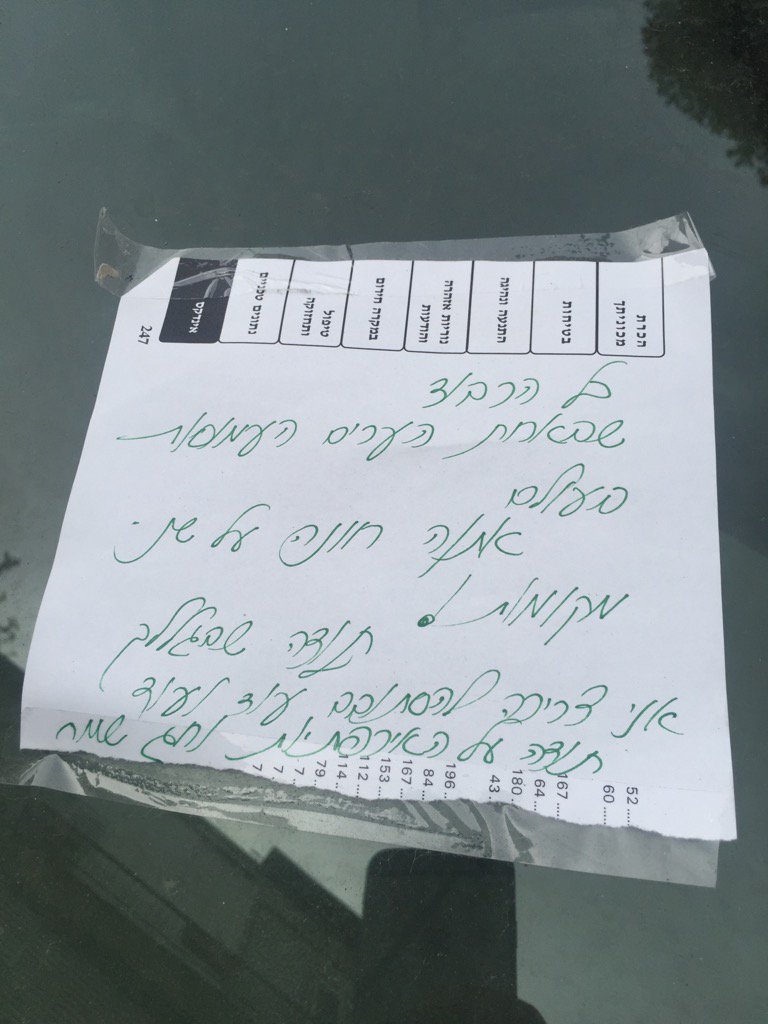 הכרת
מכוניתך
בטיחות
התנעה ונהיגה
נוריות אזהרה
והודעות
במקרה חירום
טיפול
ותחזוקה
נתונים טכניים
אינדקס
247
כל הכבוד
שבאחת הערים העמוסות
בעולם
אתה חונה על שני
מקומות!
תודה שבגללך
אני צריכה להסתובב עוד ועוד
תודה על האיכפתיות וחג שמח
52
60
167
64
180
43
196
84
167
153
112
114
79